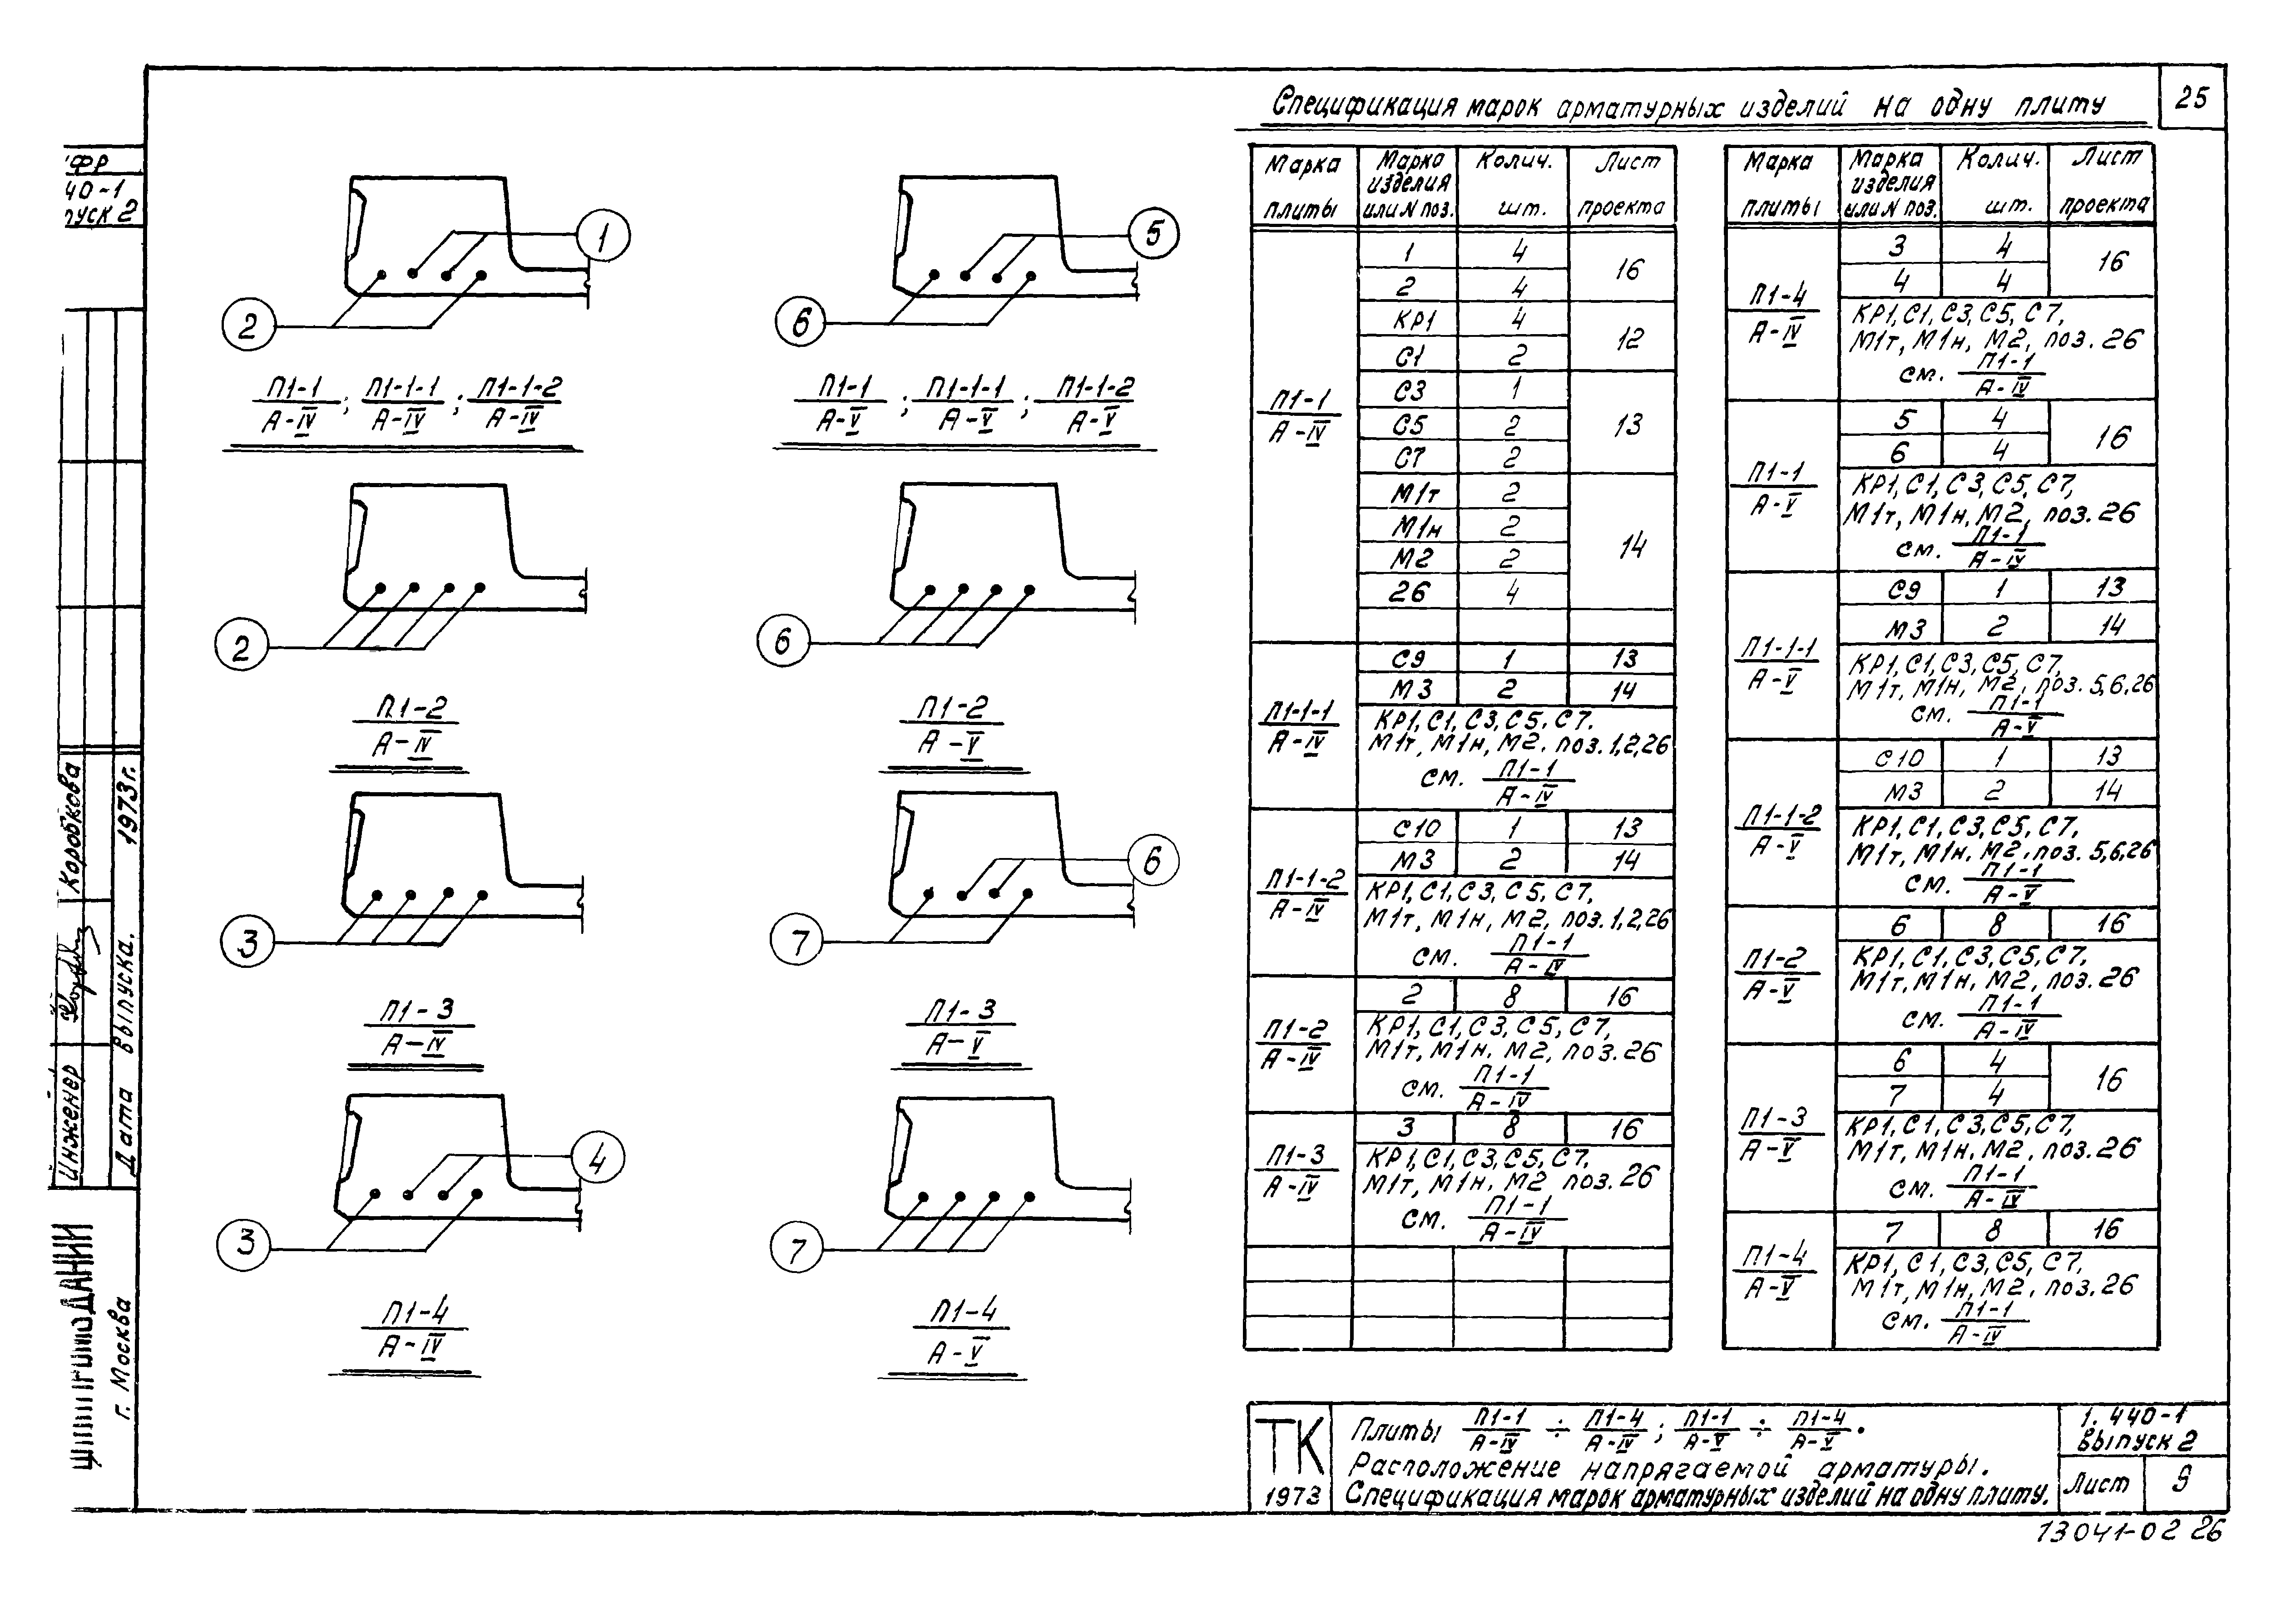 25
Спецификация марок арматурных изделий на одну плиту
ФР
40-1
пуск 2
1
2
П1-1/А-IV; П1-1-1/А-IV; П1-1-2/А-IV
5
6
П1-1/А-V; П1-1-1/А-V; П1-1-2/А-V
2
П1-2/А-IV
6
П1-2/А-V
3
П1-3/А-IV
6
7
П1-3/А-V
4
3
П1-4/А-IV
7
П1-4/А-V
Марка плиты | Марка изделия или N поз. | Колич. шт. | Лист проекта
П1-1/А-IV
1 4 16
2 4
КР1 4 12
С1 2
С3 1 13
С5 2
С7 2
М1т 2 14
М1н 2
М2 2
26 4
П1-1-1/А-IV
С9 1 13
М3 2 14
КР1, С1, С3, С5, С7,
М1т, М1н, М2, поз. 1,2,26
см. П1-1/А-IV
П1-1-2/А-IV
С10 1 13
М3 2 14
КР1, С1, С3, С5, С7,
М1т, М1н, М2, поз. 1,2,26
см. П1-1/А-IV
П1-2/А-IV
2 8 16
КР1, С1, С3, С5, С7,
М1т, М1н, М2, поз. 26
см. П1-1/А-IV
П1-3/А-IV
3 8 16
КР1, С1, С3, С5, С7,
М1т, М1н, М2 поз. 26
см. П1-1/А-IV
Марка плиты | Марка изделия или N поз. | Колич. шт. | Лист проекта
П1-4/А-IV
3 4 16
4 4
КР1, С1, С3, С5, С7,
М1т, М1н, М2, поз. 26
см. П1-1/А-IV
П1-1/А-V
5 4 16
6 4
КР1, С1, С3, С5, С7,
М1т, М1н, М2, поз. 26
см. П1-1/А-IV
П1-1-1/А-V
С9 1 13
М3 2 14
КР1, С1, С3, С5, С7,
М1т, М1н, М2, поз. 5,6,26
см. П1-1/А-V
П1-1-2/А-V
С10 1 13
М3 2 14
КР1, С1, С3, С5, С7,
М1т, М1н, М2, поз. 5,6,26
см. П1-1/А-V
П1-2/А-V
6 8 16
КР1, С1, С3, С5, С7,
М1т, М1н, М2, поз. 26
см. П1-1/А-IV
П1-3/А-V
6 4 16
7 4
КР1, С1, С3, С5, С7,
М1т, М1н, М2, поз. 26
см. П1-1/А-IV
П1-4/А-V
7 8 16
КР1, С1, С3, С5, С7,
М1т, М1н, М2, поз. 26
см. П1-1/А-IV
Инженер Коробкова
Дата выпуска. 1973г.
г. Москва
ТК
1973
Плиты П1-1/А-IV ÷ П1-4/А-IV; П1-1/А-V ÷ П1-4/А-V.
Расположение напрягаемой арматуры.
Спецификация марок арматурных изделий на одну плиту.
1.440-1
Выпуск 2
Лист 9
13041-02 26